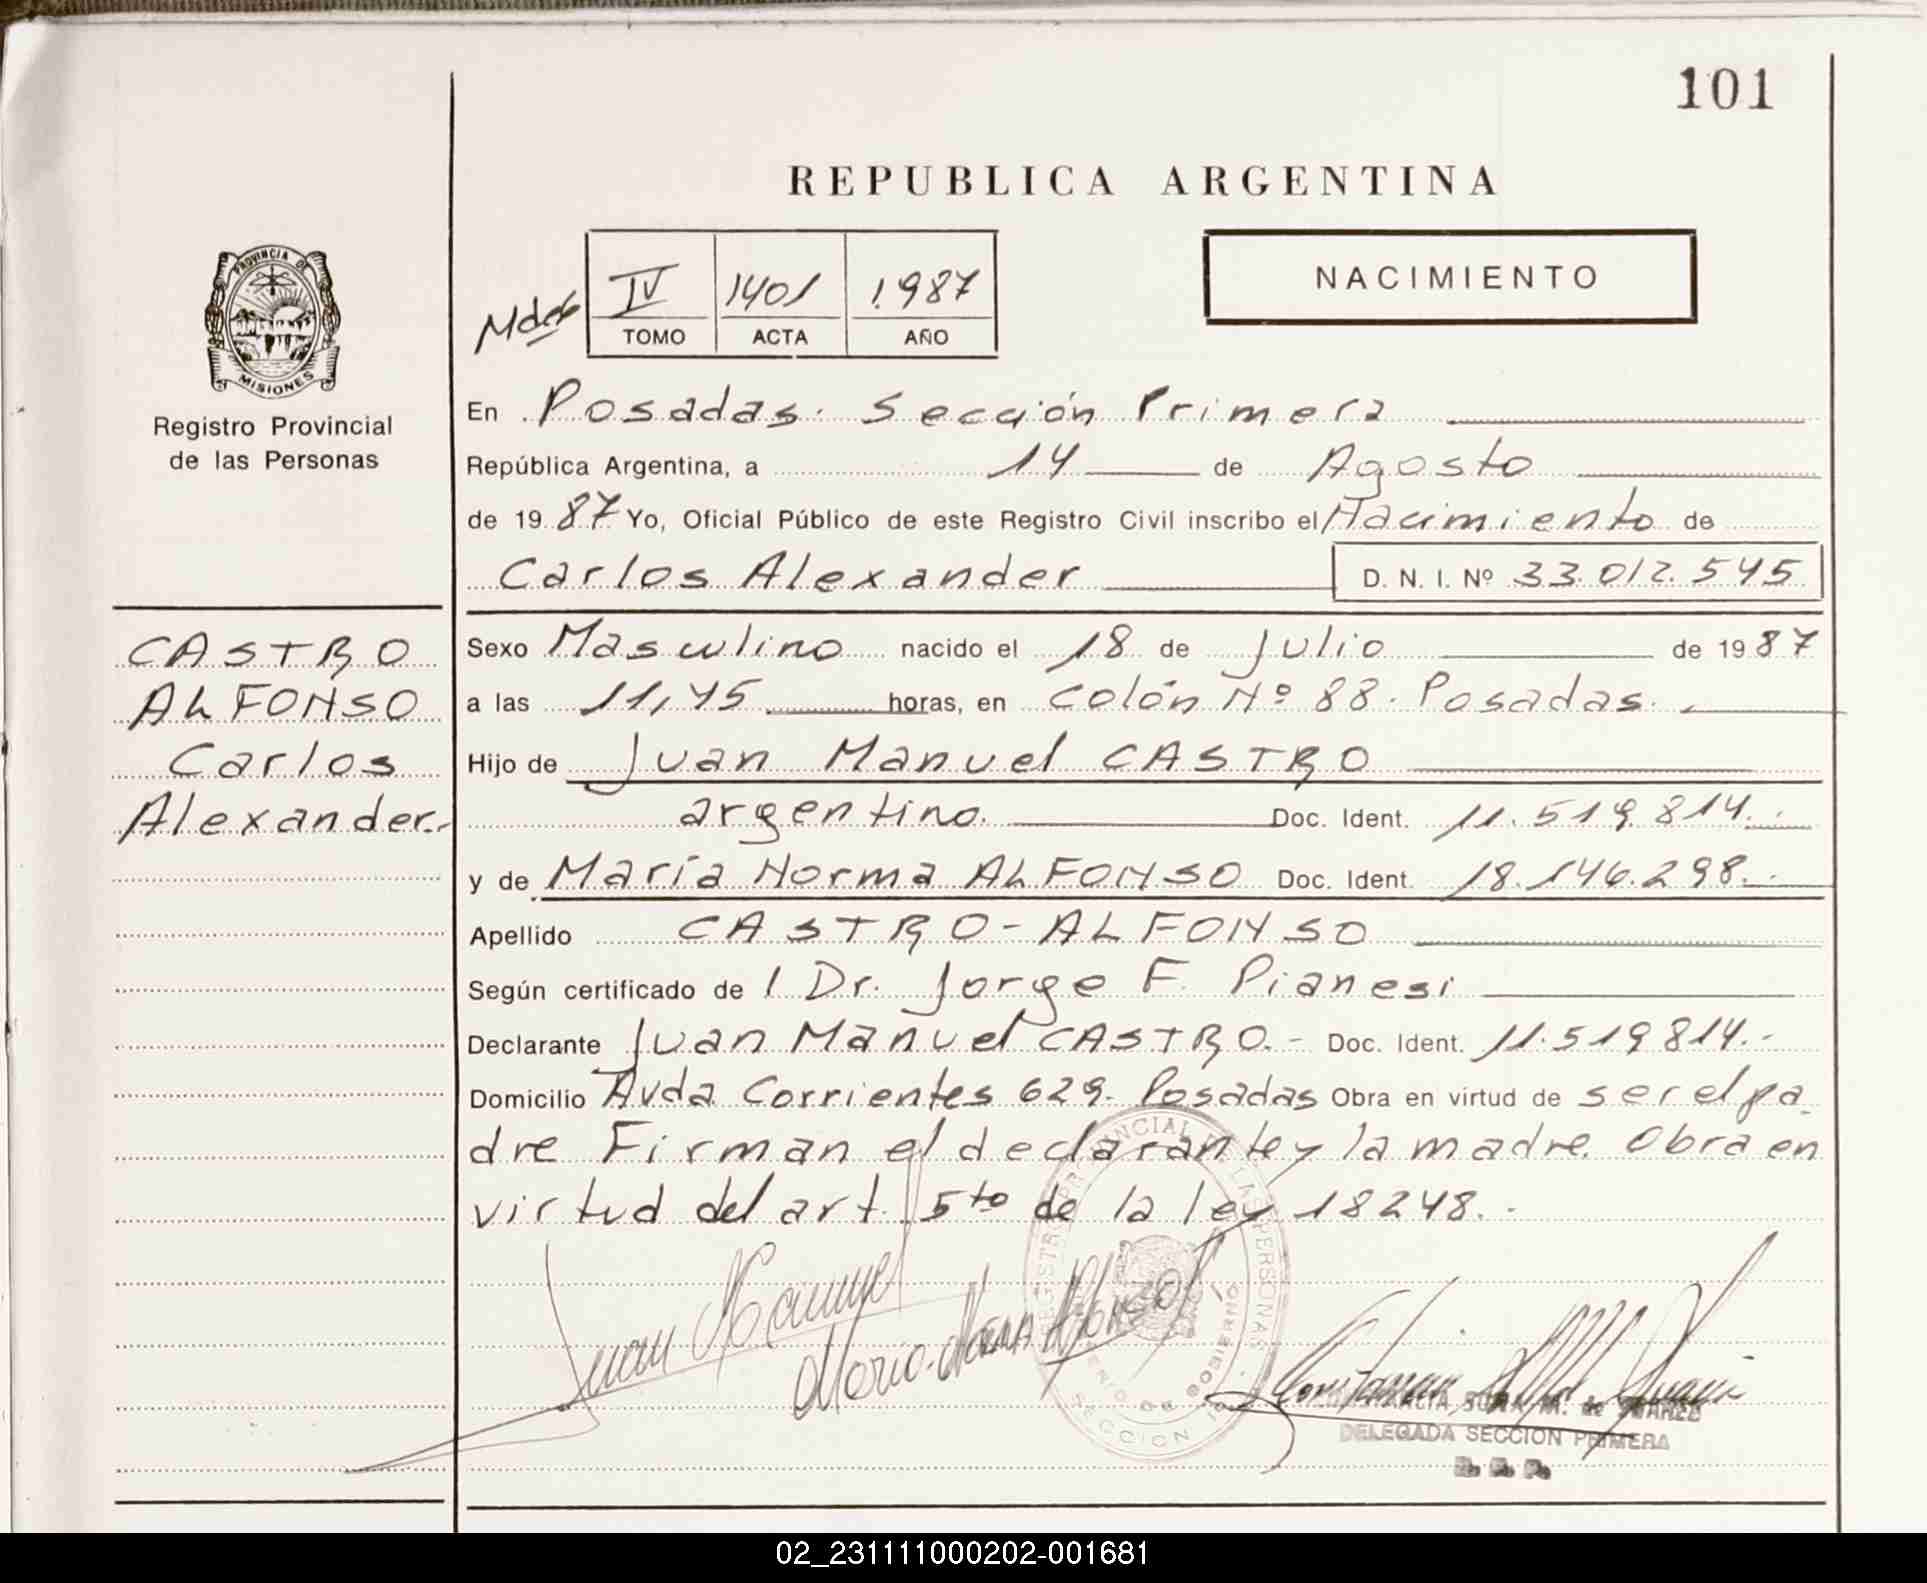 101
REPUBLICA ARGENTINA
PROVINCIA DE
MISIONES
Registro Provincial
de las Personas
IV 1401 1.987
TOMO ACTA AÑO
NACIMIENTO
En Posadas. Sección Primera
República Argentina, a 14 de Agosto
de 1987 Yo, Oficial Público de este Registro Civil inscribo el Nacimiento de
Carlos Alexander D. N. I. Nº 33.012.545
CASTRO
ALFONSO
Carlos
Alexander.-
Sexo Masculino nacido el 18 de Julio de 1987
a las 11,45 horas, en Colón Nº 88. Posadas.
Hijo de Juan Manuel CASTRO
argentino. Doc. Ident. 11.519.814.-
y de María Norma ALFONSO Doc. Ident. 18.146.298.-
Apellido CASTRO-ALFONSO
Según certificado de l Dr. Jorge F. Pianesi
Declarante Juan Manuel CASTRO.- Doc. Ident. 11.519814.-
Domicilio Avda. Corrientes 629- Posadas Obra en virtud de ser el pa
dre Firman el declarante y la madre. Obra en
virtud del art. 5to de la ley 18248.-
Juan Manuel
Maria Norma Alfonso
DELEGADA SECCION PRIMERA
R. P. P.
02_231111000202-001681